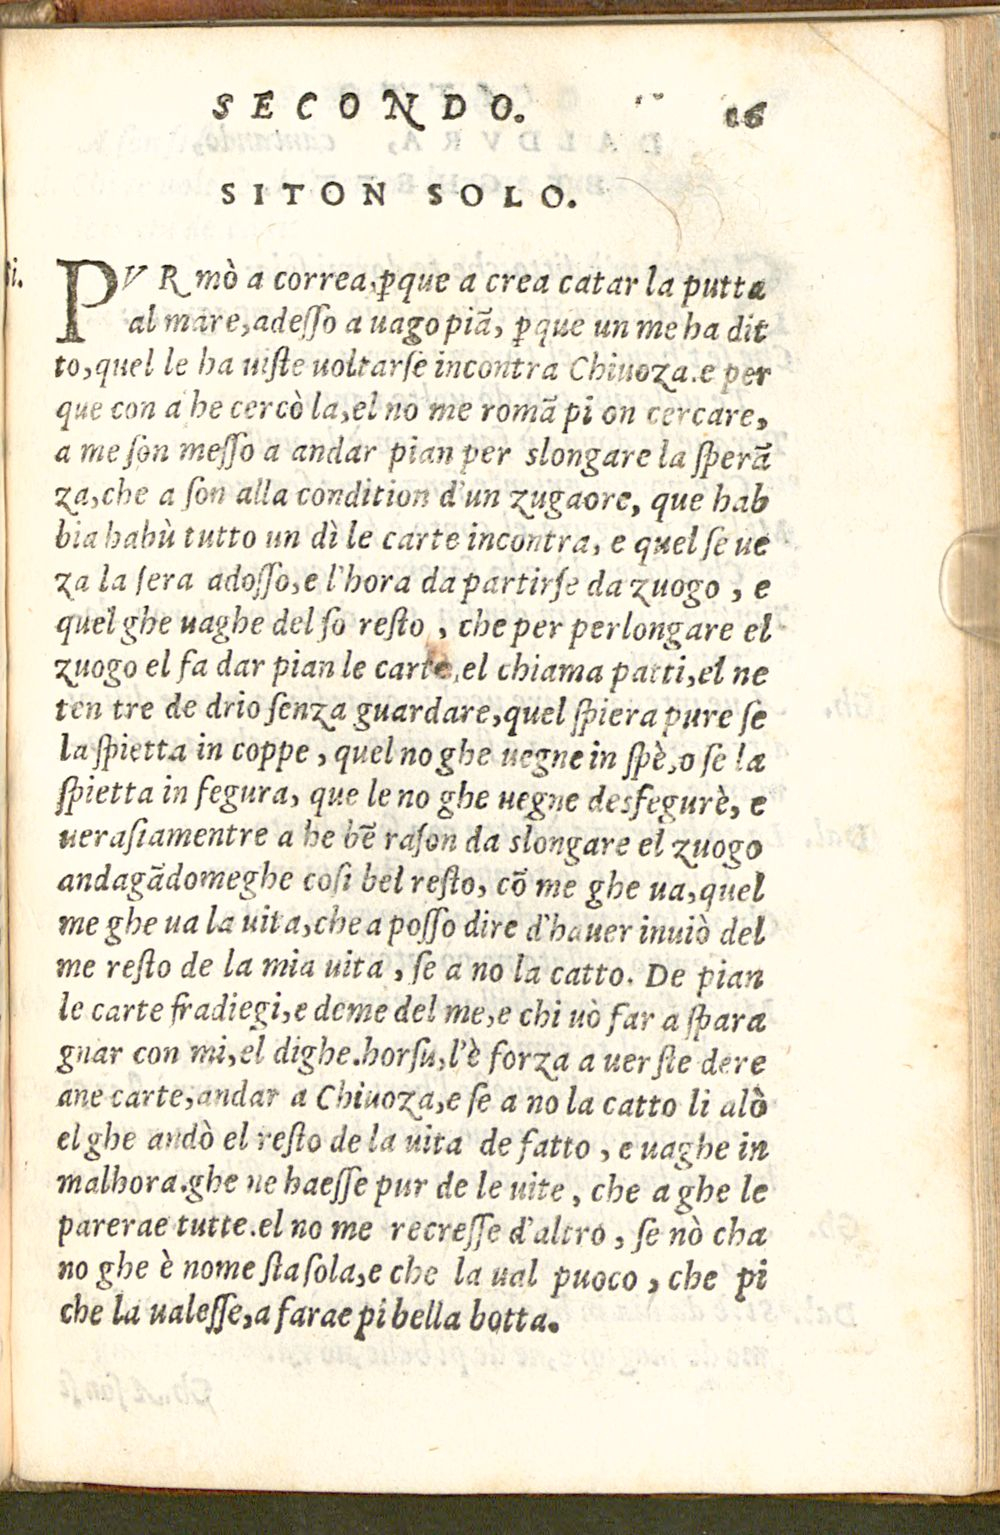 SECONDO. 26
SITON SOLO.
Si. PVR mò a correa, ꝑque a crea catar la putta
al mare, adeſſo a uago piã, ꝑque un me ha dit
to, quel le ha uiſte uoltarſe incontra Chiuoza. e per
que con a he cercò la, el no me romã pi on cercare,
a me ſon meſſo a andar pian per slongare la ſperã
za, che a ſon alla condition d'un zugaore, que hab
bia habù tutto un dì le carte incontra, e quel ſe ue
za la ſera adoſſo, e l'hora da partirſe da zuogo, e
quel ghe uaghe del ſo reſto, che per perlongare el
zuogo el fa dar pian le carte, el chiama patti, el ne
ten tre de drio ſenza guardare, quel ſpiera pure ſe
la ſpietta in coppe, quel no ghe uegne in ſpè, o ſe la
ſpietta in fegura, que le no ghe uegne desfegurè, e
ueraſiamentre a he bẽ raſon da slongare el zuogo
andagãdomeghe coſi bel reſto, cõ me ghe ua, quel
me ghe ua la uita, che a poſſo dire d'hauer inuiò del
me reſto de la mia uita, ſe a no la catto. De pian
le carte fradiegi, e deme del me, e chi uò far a ſpara
gnar con mi, el dighe. horſu, l'è forza a uer ſte dere
ane carte, andar a Chiuoza, e ſe a no la catto li alò
el ghe andò el reſto de la uita de fatto, e uaghe in
malhora. ghe ne haeſſe pur de le uite, che a ghe le
parerae tutte. el no me recreſſe d'altro, ſe nò cha
no ghe è nome ſta ſola, e che la ual puoco, che pi
che la ualeſſe, a farae pi bella botta.